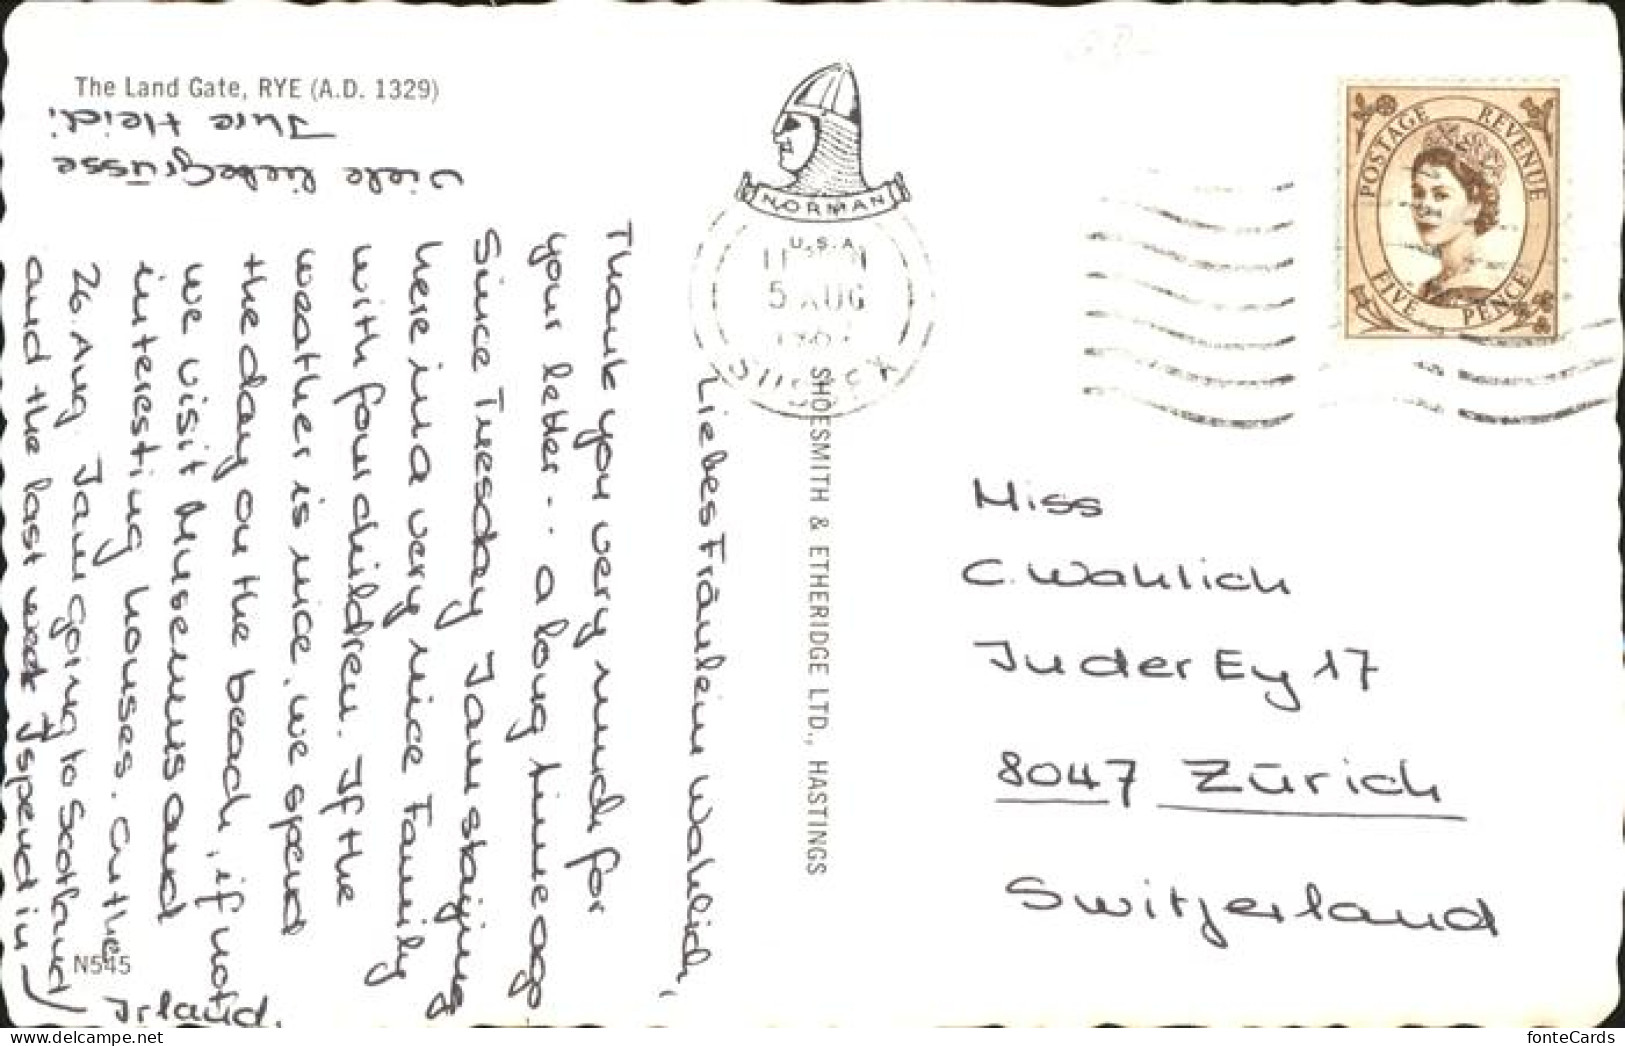 The Land Gate, RYE (A.D. 1329)
Liebes Fräulein Wahlich,
Thank you very much for
your letter -- a long time ago
Since Tuesday I am staying
here in a very nice Family
with four children. If the
weather is nice, we spend
the day on the beach, if not
we visit Museums and
interesting houses. On the
26. Aug I am going to Scotland
and the last week I spend in
Irland.
Viele liebe Grüsse
Ihre Heidi
N545
NORMAN
U.S.A
5 AUG
SUSSEX
SHOESMITH & ETHERIDGE LTD., HASTINGS
POSTAGE REVENUE
FIVE PENCE
Miss
C. Wahlich
In der Ey 17
8047 Zürich
Switzerland
fonteCards